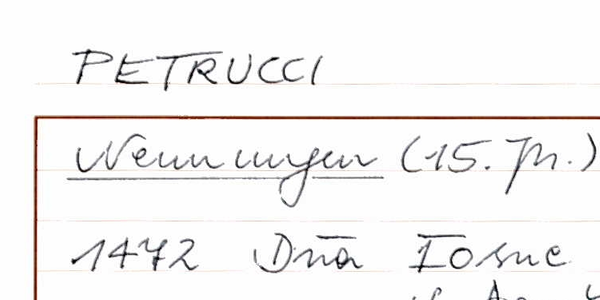 PETRUCCI
Nennungen (15. Jh.)
1472 Dn̄a